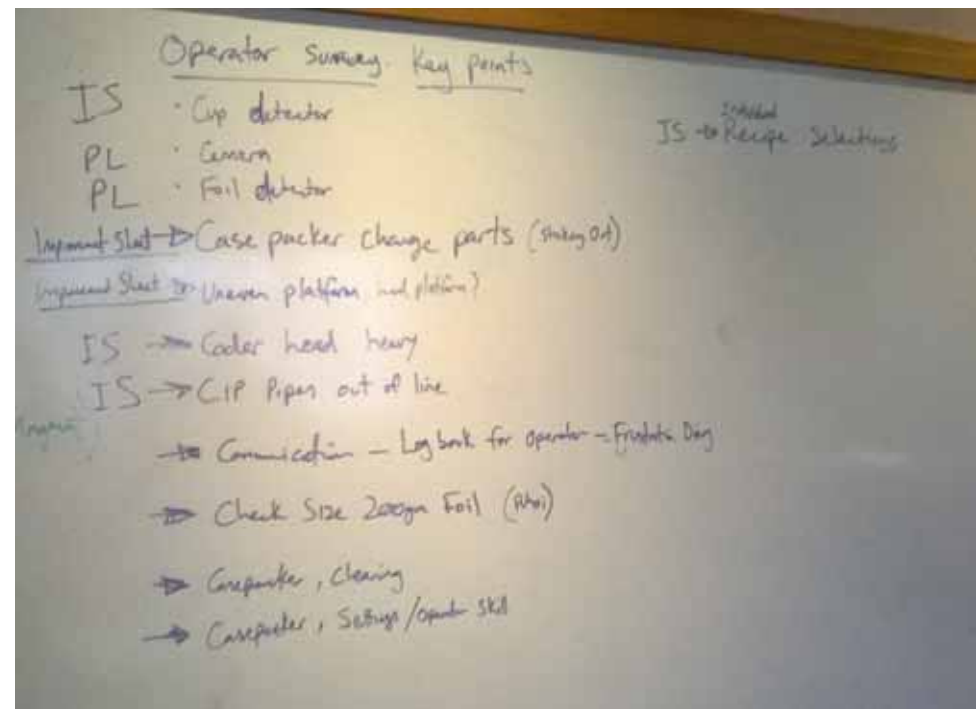 Operator Survey. Key points
IS · Cup detector
PL · Camera
PL · Foil detector
Sheet → Case packer change parts (Out)
Sheet → Uneven platform, platform?
IS → Coder head heavy
IS → CIP Pipes out of line
→ Comunication - Log book for operator - Day
→ Check Size 200gm Foil
→ Casepacker, Cleaning
→ Casepacker, Settings/operator Skill
Individual
IS → Recipe Selections